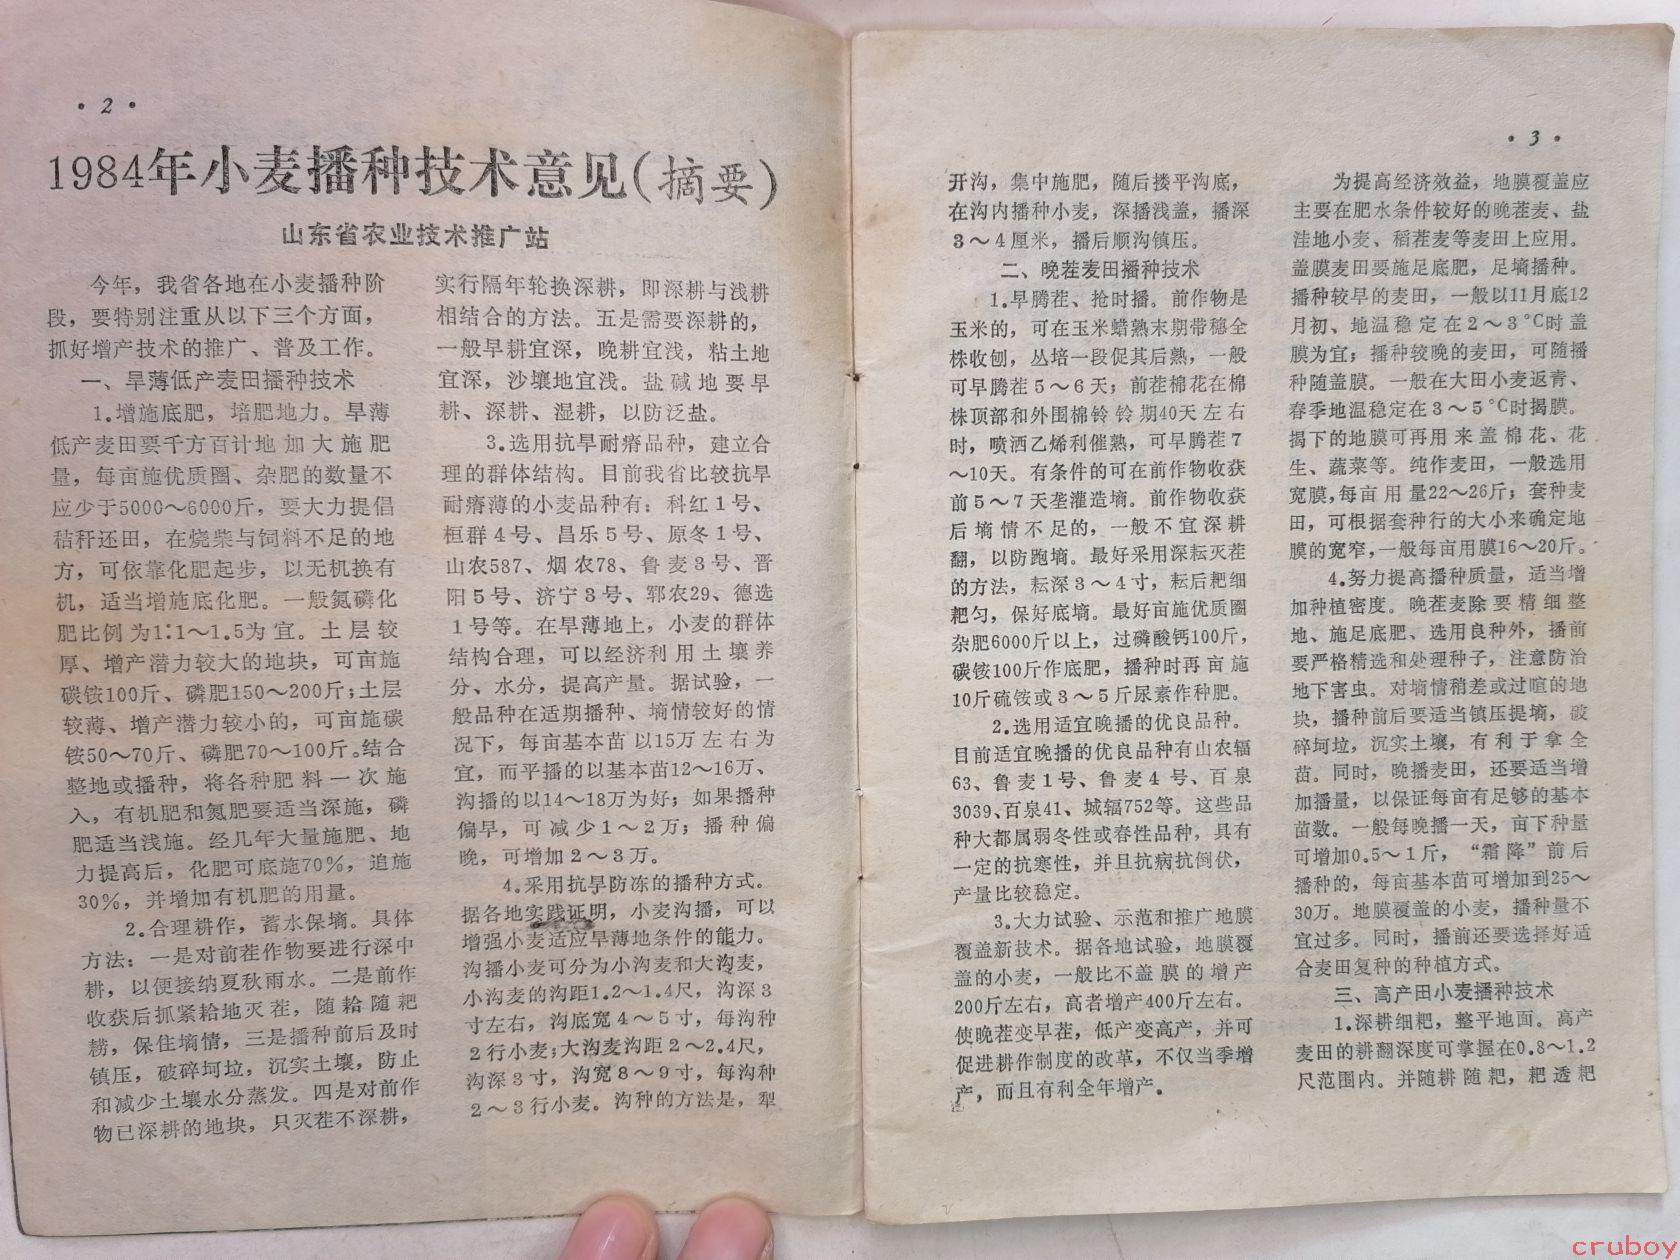 · 2 ·
1984年小麦播种技术意见(摘要)
山东省农业技术推广站
今年，我省各地在小麦播种阶
段，要特别注重从以下三个方面，
抓好增产技术的推广、普及工作。
一、旱薄低产麦田播种技术
1.增施底肥，培肥地力。旱薄
低产麦田要千方百计地加大施肥
量，每亩施优质圈、杂肥的数量不
应少于5000～6000斤，要大力提倡
秸秆还田，在烧柴与饲料不足的地
方，可依靠化肥起步，以无机换有
机，适当增施底化肥。一般氮磷化
肥比例为1:1～1.5为宜。土层较
厚、增产潜力较大的地块，可亩施
碳铵100斤、磷肥150～200斤；土层
较薄、增产潜力较小的，可亩施碳
铵50～70斤、磷肥70～100斤。结合
整地或播种，将各种肥料一次施
入，有机肥和氮肥要适当深施，磷
肥适当浅施。经几年大量施肥、地
力提高后，化肥可底施70%，追施
30%，并增加有机肥的用量。
2.合理耕作，蓄水保墒。具体
方法：一是对前茬作物要进行深中
耕，以便接纳夏秋雨水。二是前作
收获后抓紧耠地灭茬，随耠随耙
耢，保住墒情，三是播种前后及时
镇压，破碎坷垃，沉实土壤，防止
和减少土壤水分蒸发。四是对前作
物已深耕的地块，只灭茬不深耕，
实行隔年轮换深耕，即深耕与浅耕
相结合的方法。五是需要深耕的，
一般早耕宜深，晚耕宜浅，粘土地
宜深，沙壤地宜浅。盐碱地要早
耕、深耕、湿耕，以防泛盐。
3.选用抗旱耐瘠品种，建立合
理的群体结构。目前我省比较抗旱
耐瘠薄的小麦品种有：科红1号、
桓群4号、昌乐5号、原冬1号、
山农587、烟农78、鲁麦3号、晋
阳5号、济宁3号、郓农29、德选
1号等。在旱薄地上，小麦的群体
结构合理，可以经济利用土壤养
分、水分，提高产量。据试验，一
般品种在适期播种、墒情较好的情
况下，每亩基本苗以15万左右为
宜，而平播的以基本苗12～16万、
沟播的以14～18万为好；如果播种
偏早，可减少1～2万；播种偏
晚，可增加2～3万。
4.采用抗旱防冻的播种方式。
据各地实践证明，小麦沟播，可以
增强小麦适应旱薄地条件的能力。
沟播小麦可分为小沟麦和大沟麦，
小沟麦的沟距1.2～1.4尺，沟深3
寸左右，沟底宽4～5寸，每沟种
2行小麦；大沟麦沟距2～2.4尺，
沟深3寸，沟宽8～9寸，每沟种
2～3行小麦。沟种的方法是，犁
· 3 ·
开沟，集中施肥，随后搂平沟底，
在沟内播种小麦，深播浅盖，播深
3～4厘米，播后顺沟镇压。
二、晚茬麦田播种技术
1.早腾茬、抢时播。前作物是
玉米的，可在玉米蜡熟末期带穗全
株收刨，丛培一段促其后熟，一般
可早腾茬5～6天；前茬棉花在棉
株顶部和外围棉铃铃期40天左右
时，喷洒乙烯利催熟，可早腾茬7
～10天。有条件的可在前作物收获
前5～7天垄灌造墒。前作物收获
后墒情不足的，一般不宜深耕
翻，以防跑墒。最好采用深耘灭茬
的方法，耘深3～4寸，耘后耙细
耙匀，保好底墒。最好亩施优质圈
杂肥6000斤以上，过磷酸钙100斤，
碳铵100斤作底肥，播种时再亩施
10斤硫铵或3～5斤尿素作种肥。
2.选用适宜晚播的优良品种。
目前适宜晚播的优良品种有山农辐
63、鲁麦1号、鲁麦4号、百泉
3039、百泉41、城辐752等。这些品
种大都属弱冬性或春性品种，具有
一定的抗寒性，并且抗病抗倒伏，
产量比较稳定。
3.大力试验、示范和推广地膜
覆盖新技术。据各地试验，地膜覆
盖的小麦，一般比不盖膜的增产
200斤左右，高者增产400斤左右。
使晚茬变早茬，低产变高产，并可
促进耕作制度的改革，不仅当季增
产，而且有利全年增产。
为提高经济效益，地膜覆盖应
主要在肥水条件较好的晚茬麦、盐
洼地小麦、稻茬麦等麦田上应用。
盖膜麦田要施足底肥，足墒播种。
播种较早的麦田，一般以11月底12
月初、地温稳定在2～3℃时盖
膜为宜；播种较晚的麦田，可随播
种随盖膜。一般在大田小麦返青、
春季地温稳定在3～5℃时揭膜。
揭下的地膜可再用来盖棉花、花
生、蔬菜等。纯作麦田，一般选用
宽膜，每亩用量22～26斤；套种麦
田，可根据套种行的大小来确定地
膜的宽窄，一般每亩用膜16～20斤。
4.努力提高播种质量，适当增
加种植密度。晚茬麦除要精细整
地、施足底肥、选用良种外，播前
要严格精选和处理种子，注意防治
地下害虫。对墒情稍差或过暄的地
块，播种前后要适当镇压提墒，破
碎坷垃，沉实土壤，有利于拿全
苗。同时，晚播麦田，还要适当增
加播量，以保证每亩有足够的基本
苗数。一般每晚播一天，亩下种量
可增加0.5～1斤，“霜降”前后
播种的，每亩基本苗可增加到25～
30万。地膜覆盖的小麦，播种量不
宜过多。同时，播前还要选择好适
合麦田复种的种植方式。
三、高产田小麦播种技术
1.深耕细耙，整平地面。高产
麦田的耕翻深度可掌握在0.8～1.2
尺范围内。并随耕随耙，耙透耙
cruboy